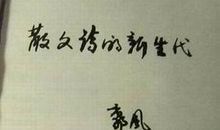 散文诗的新生代
郭风